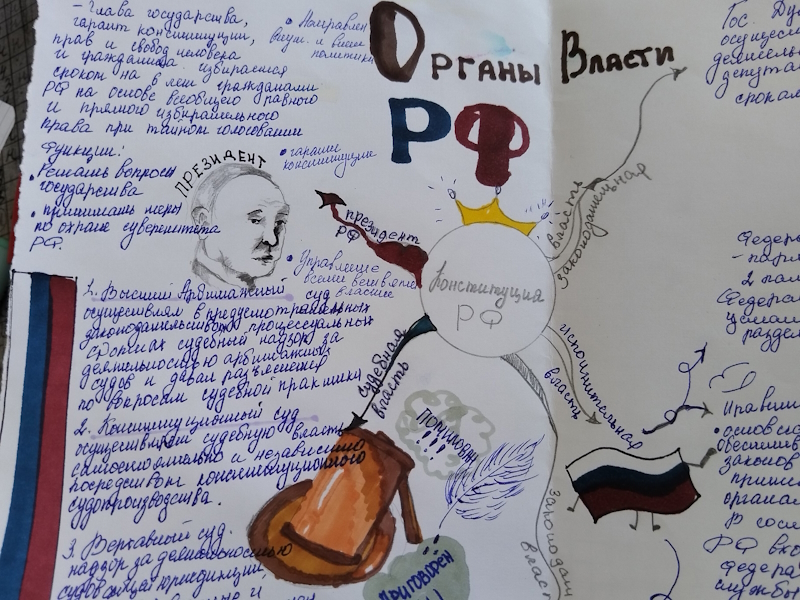 Органы Власти
РФ
- Глава государства,
гарант конституции,
прав и свобод человека
и гражданина. Избирается
сроком на 6 лет гражданами
РФ на основе всеобщего равного
и прямого избирательного
права при тайном голосовании
Функции:
• Решать вопросы
государства
• принимать меры
по охране суверенитета
РФ.
• гарант
конституции
ПРЕЗИДЕНТ
• Управление
всеми ветвями
власти
президент
РФ
Конституция
РФ
власть
законодательная
судебная
власть
исполнительная
власть
1. Высший Арбитражный суд
осуществлял в предусмотренных
законодательством процессуальных
формах судебный надзор за
деятельностью арбитражных
судов и давал разъяснения
по вопросам судебной практики
2. Конституционный суд
осуществляет судебную власть
самостоятельно и независимо
посредством конституционного
судопроизводства.
3. Верховный суд.
надзор за деятельностью
судов общей юрисдикции
Помиловать
!!!
Приговорён
Гос.
осущес
деятель
депута
сроком
Федера
2 пал
Федера
разде
Правит
законов
органа
В сос
РФ
Федера
службы